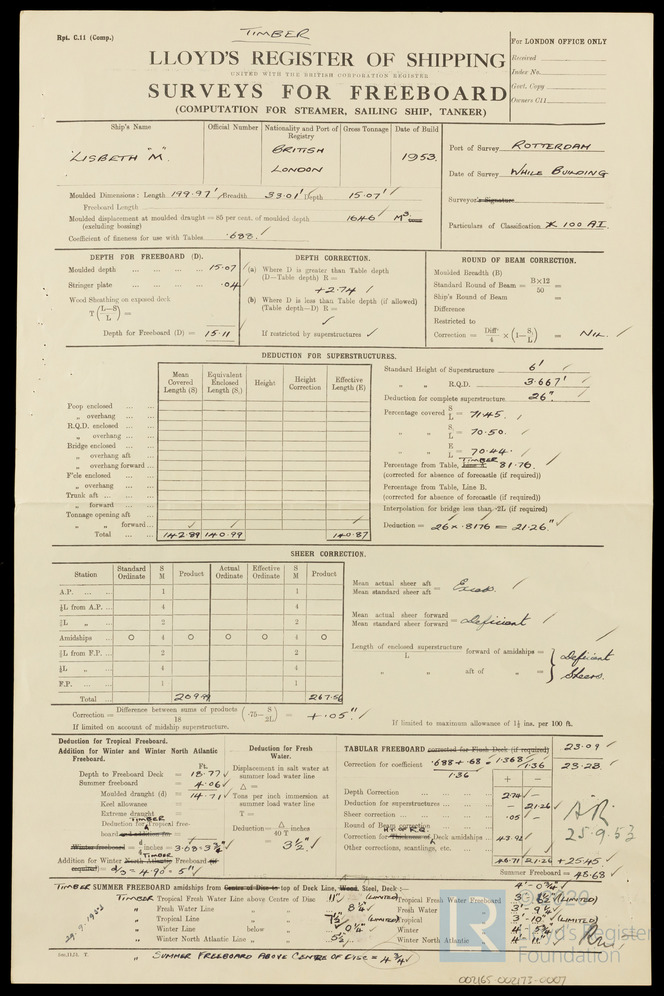 TIMBER
Rpt. C.11 (Comp.)
LLOYD'S REGISTER OF SHIPPING
UNITED WITH THE BRITISH CORPORATION REGISTER
SURVEYS FOR FREEBOARD
(COMPUTATION FOR STEAMER, SAILING SHIP, TANKER)
For LONDON OFFICE ONLY
Received
Index No.
Govt. Copy
Owners C11
Ship's Name
Official Number
Nationality and Port of Registry
Gross Tonnage
Date of Build
"LISBETH "M".
BRITISH
LONDON
1953.
Port of Survey ROTTERDAM
Date of Survey WHILE BUILDING
Surveyor's Signature
Particulars of Classification 100 A1.
Moulded Dimensions: Length 199.97' Breadth 33.01' Depth 15.07'
Freeboard Length
Moulded displacement at moulded draught = 85 per cent. of moulded depth 1646 M3
(excluding bossing)
Coefficient of fineness for use with Tables .688.
DEPTH FOR FREEBOARD (D).
Moulded depth ... 15.07
Stringer plate ... .04
Wood Sheathing on exposed deck
T (L-S / L) =
Depth for Freeboard (D) = 15.11
DEPTH CORRECTION.
(a) Where D is greater than Table depth
(D-Table depth) R =
+2.74
(b) Where D is less than Table depth (if allowed)
(Table depth-D) R =
If restricted by superstructures
ROUND OF BEAM CORRECTION.
Moulded Breadth (B)
Standard Round of Beam = B×12 / 50 =
Ship's Round of Beam =
Difference
Restricted to
Correction = Diff / 4 × (1-S/L) = NIL.
DEDUCTION FOR SUPERSTRUCTURES.
Mean Covered Length (S)
Equivalent Enclosed Length (S1)
Height
Height Correction
Effective Length (E)
Poop enclosed
" overhang
R.Q.D. enclosed
" overhang
Bridge enclosed
" overhang aft
" overhang forward
F'cle enclosed
" overhang
Trunk aft
" forward
Tonnage opening aft
" " forward
Total 142.89 140.99 140.87
Standard Height of Superstructure 6'
" " R.Q.D. 3.667'
Deduction for complete superstructure 26".
Percentage covered S/L = 71.45.
" " S1/L = 70.50.
" " E/L = 70.44.
Percentage from Table, Line A TIMBER 81.76.
(corrected for absence of forecastle (if required))
Percentage from Table, Line B.
(corrected for absence of forecastle (if required))
Interpolation for bridge less than ·2L (if required)
Deduction = 26 × .8176 = 21.26"
SHEER CORRECTION.
Station
Standard Ordinate
S M
Product
Actual Ordinate
Effective Ordinate
S M
Product
A.P. 1 1
⅙L from A.P. 4 4
⅓L " 2 2
Amidships 0 4 0 0 0 4 0
⅓L from F.P. 2 2
⅙L " 4 4
F.P. 1 1
Total 267.56
Mean actual sheer aft / Mean standard sheer aft = Excess.
Mean actual sheer forward / Mean standard sheer forward = Deficient
Length of enclosed superstructure / L forward of amidships =
" aft of " =
Deficient
Sheers.
Correction = Difference between sums of products / 18 (·75- S/2L) = +.05".
If limited on account of midship superstructure.
If limited to maximum allowance of 1½ ins. per 100 ft.
Deduction for Tropical Freeboard.
Addition for Winter and Winter North Atlantic Freeboard.
Ft.
Depth to Freeboard Deck = 18.77
Summer freeboard = 4.06
Moulded draught (d) = 14.71
Keel allowance =
Extreme draught =
TIMBER
Deduction for Tropical freeboard and addition for Winter freeboard = d/4 inches = 3.68=3¾"
TIMBER
Addition for Winter North Atlantic Freeboard (if required) = d/3 = 4.90 = 5"
Deduction for Fresh Water.
Displacement in salt water at summer load water line
Δ =
Tons per inch immersion at summer load water line
T =
Deduction = Δ / 40 T inches
= 3½".
TABULAR FREEBOARD corrected for Flush Deck (if required) 23.09
Correction for coefficient .688 + .68 / 1.36 = 1.368 / 1.36 23.23
+ -
Depth Correction 2.74 -
Deduction for superstructures - 21.26
Sheer correction .05 -
Round of Beam correction
HT. OF R.Q.
Correction for Thickness of Deck amidships 43.92
Other corrections, scantlings, etc.
46.71 21.26 +25.45
Summer Freeboard = 48.68
25.9.53
TIMBER SUMMER FREEBOARD amidships from Centre of Disc to top of Deck Line, Wood, Steel, Deck :— 4'- 0¾"
TIMBER Tropical Fresh Water Line above Centre of Disc 11" (LIMITED) Tropical Fresh Water Freeboard 3'- 6½" (LIMITED)
" Fresh Water Line " " 8¼" Fresh Water " 3'- 9¼"
" Tropical Line " " 7½" (LIMITED) Tropical " 3'- 10" (LIMITED)
" Winter Line below " 0¼" Winter " 4'- 5¾"
" Winter North Atlantic Line " " 0½" Winter North Atlantic " 4'- 11"
29.9.1953
" SUMMER FREEBOARD ABOVE CENTRE OF DISC = 4¾"
© 2020
LR
Lloyd's Register
Foundation
002165-002173-0007